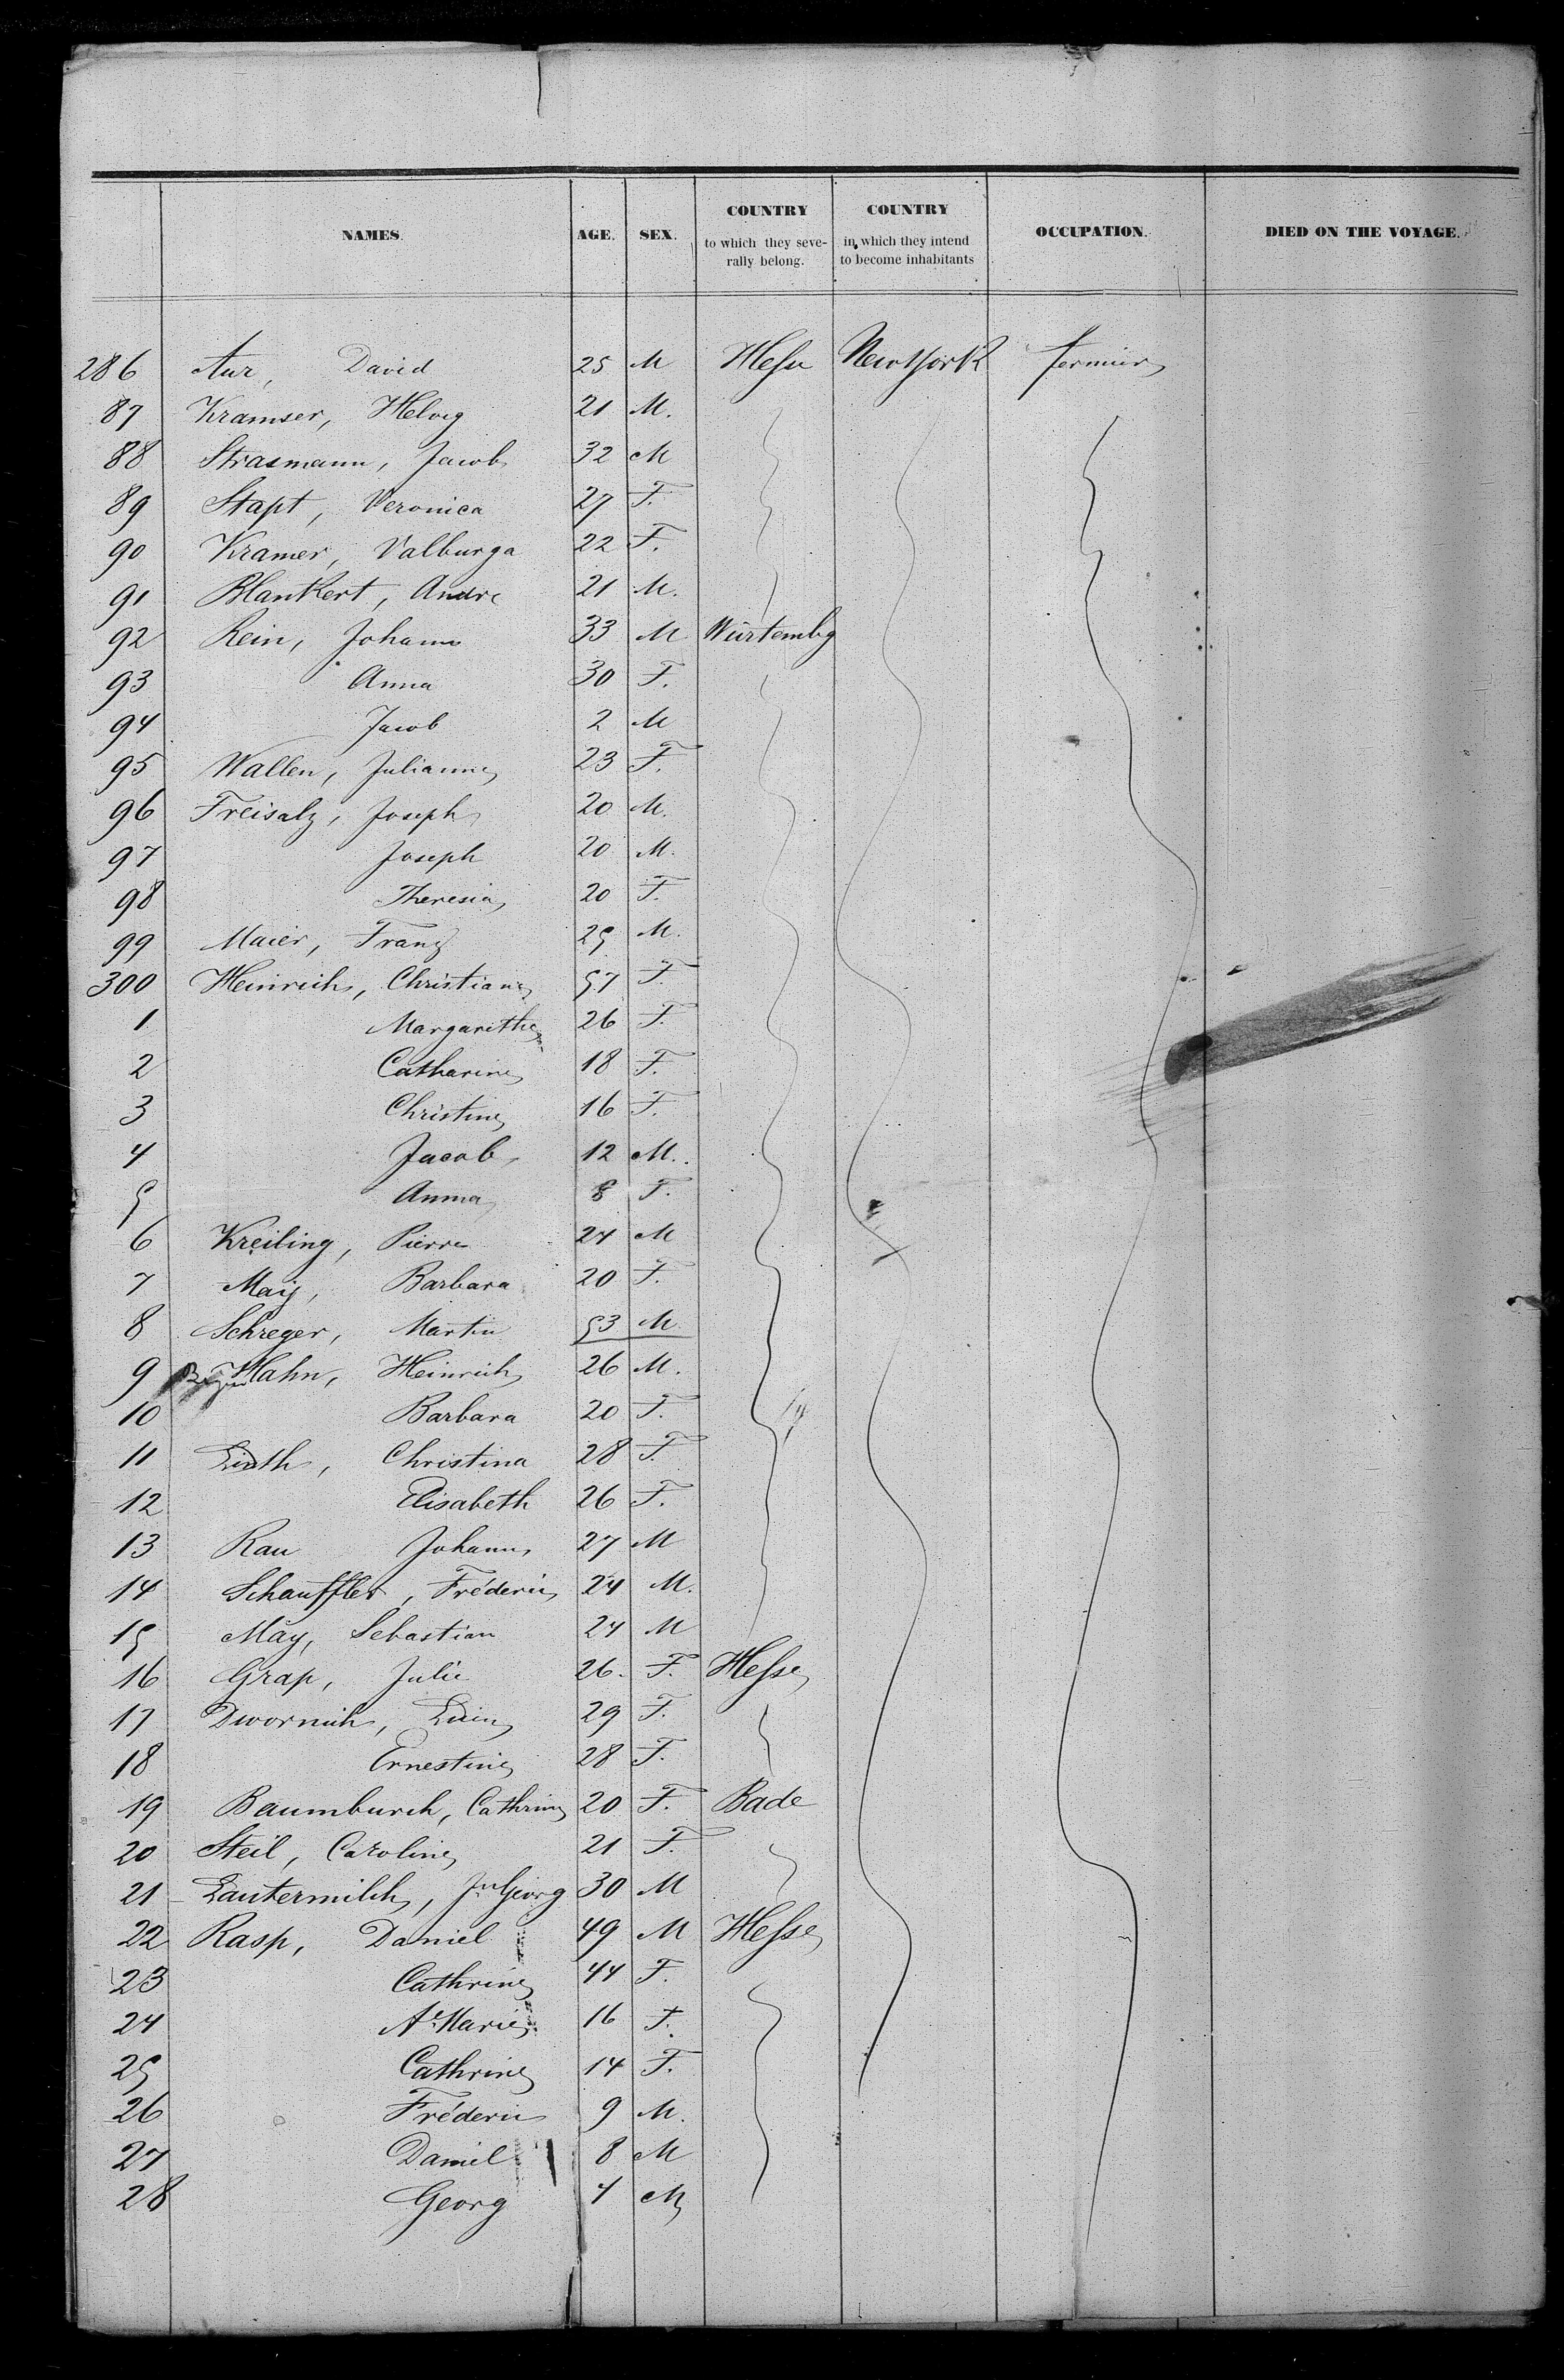 NAMES. AGE. SEX. COUNTRY to which they severally belong. COUNTRY in which they intend to become inhabitants OCCUPATION. DIED ON THE VOYAGE.
286 Aur, David 25 M Hesse NewYork fermier
87 Kramser, Helvig 21 M.
88 Strasmann, Jacob 32 M
89 Stapt, Veronica 27 F.
90 Kramer, Valburga 22 F.
91 Blankert, Andre 21 M.
92 Rein, Johann 33 M Würtembg
93 Anna 30 F.
94 Jacob 2 M
95 Wallen, Julianne 23 F.
96 Freisalz, Joseph 20 M.
97 Joseph 20 M.
98 Theresia 20 F.
99 Maier, Franz 25 M.
300 Heinrich, Christiane 57 F.
1 Margarithe 26 F.
2 Catharine 18 F.
3 Christine 16 F.
4 Jacob 12 M.
5 Anna 8 F.
6 Kreiling, Pierre 24 M
7 May, Barbara 20 F.
8 Schreger, Martin 53 M.
9 Hahn, Heinrich 26 M.
10 Barbara 20 F.
11 Christina 28 F.
12 Elisabeth 26 F.
13 Rau Johann 27 M
14 Schauffler, Fréderic 24 M.
15 May, Sebastian 24 M
16 Grap, Julie 26. F. Hesse
17 Dwornich, 29 F.
18 Ernestine 28 F.
19 Baumburch, Cathrine 20 F. Bade
20 Steil, Caroline 21 F.
21 Lautermilch, Jn Georg 30 M
22 Rasp, Daniel 49 M Hesse
23 Cathrine 44 F.
24 Ae Marie 16 F.
25 Cathrine 14 F.
26 Fréderic 9 M.
27 Daniel 8 M
28 Georg 4 M